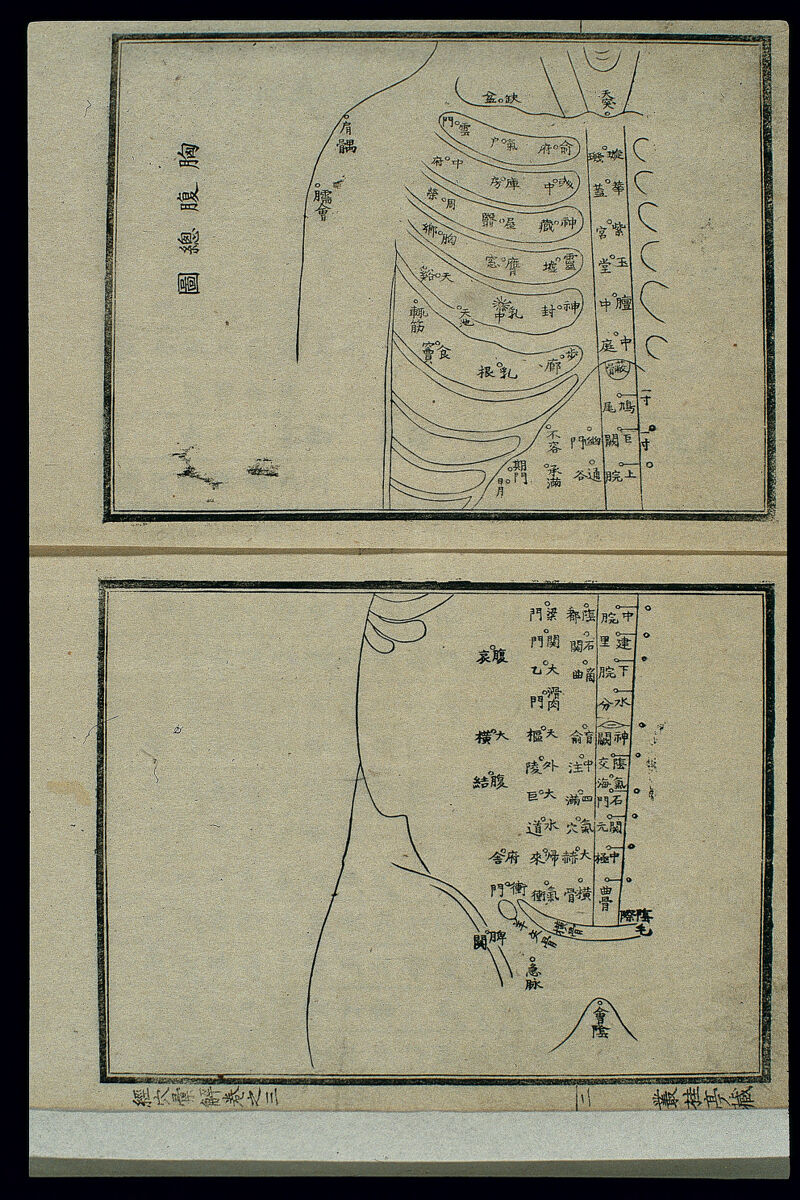 胸腹總圖
天突
缺盆
肩髃
臑會
璇璣
俞府
氣戶
雲門
中府
華蓋
彧中
庫房
周榮
紫宮
神藏
屋翳
胸鄉
玉堂
靈墟
膺窓
天谿
膻中
神封
乳中
天池
輒筋
中庭
步廊
乳根
食竇
蔽骨
一寸
鳩尾
一寸
巨闕
幽門
不容
上脘
通谷
承滿
期門
日月
中脘
陰都
梁門
建里
石關
關門
腹哀
下脘
商曲
太乙
水分
滑肉門
神闕
肓俞
天樞
大橫
陰交
中注
外陵
腹結
氣海
石門
四滿
大巨
關元
氣穴
水道
中極
大赫
歸來
府舍
曲骨
橫骨
氣衝
衝門
陰毛際
橫骨
羊矢骨
脾關
急脉
會陰
經穴彙解卷之三
三
叢桂亭藏